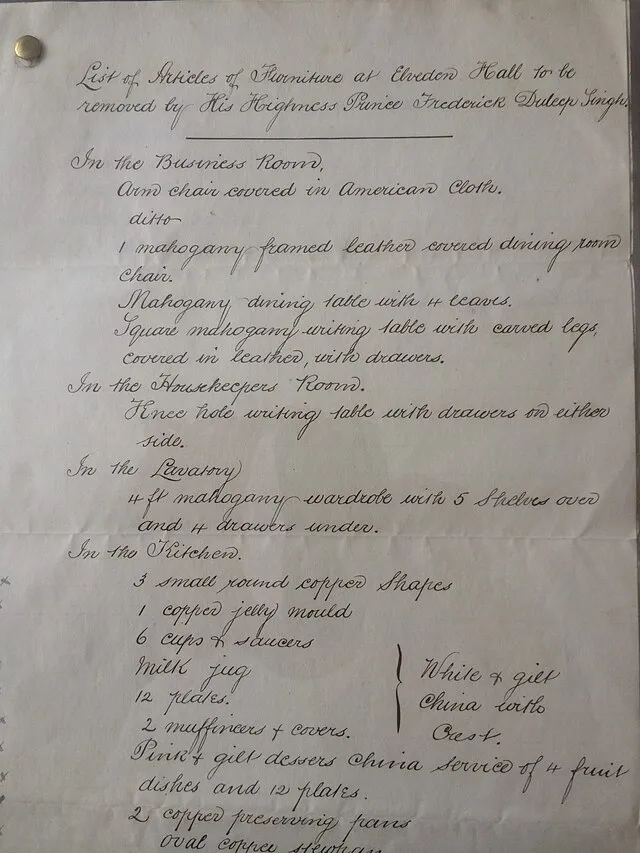 List of Articles of Furniture at Elveden Hall to be
removed by His Highness Prince Frederick Duleep Singh.
In the Business Room,
Arm chair covered in American Cloth.
ditto
1 mahogany framed leather covered dining room
chair.
Mahogany dining table with 4 leaves.
Square mahogany writing table with carved legs,
covered in leather, with drawers.
In the Housekeepers Room.
Knee hole writing table with drawers on either
side.
In the Lavatory
4 ft mahogany wardrobe with 5 Shelves over
and 4 drawers under.
In the Kitchen.
3 small round copper Shapes
1 copper jelly mould
6 cups & saucers
Milk jug
12 plates.
2 muffineers & covers.
White & gilt
China with
Crest.
Pink & gilt dessers China service of 4 fruit
dishes and 12 plates.
2 copper preserving pans
oval copper stewpan